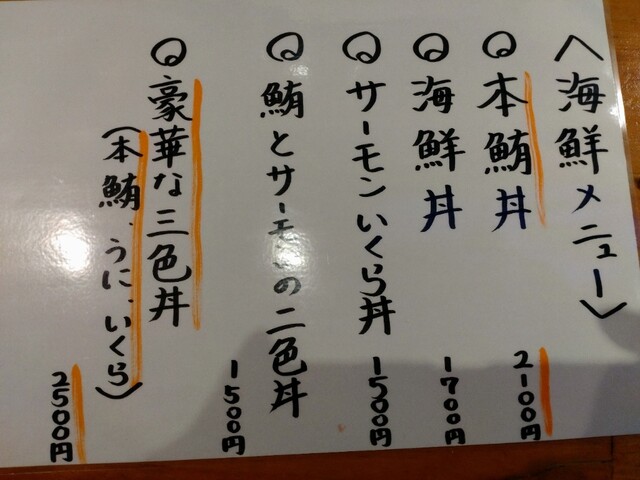 〈海鮮メニュー〉
○本鮪丼 2100円
○海鮮丼 1700円
○サーモンいくら丼 1500円
○鮪とサーモンの二色丼 1500円
○豪華な三色丼
(本鮪、うに、いくら) 2500円